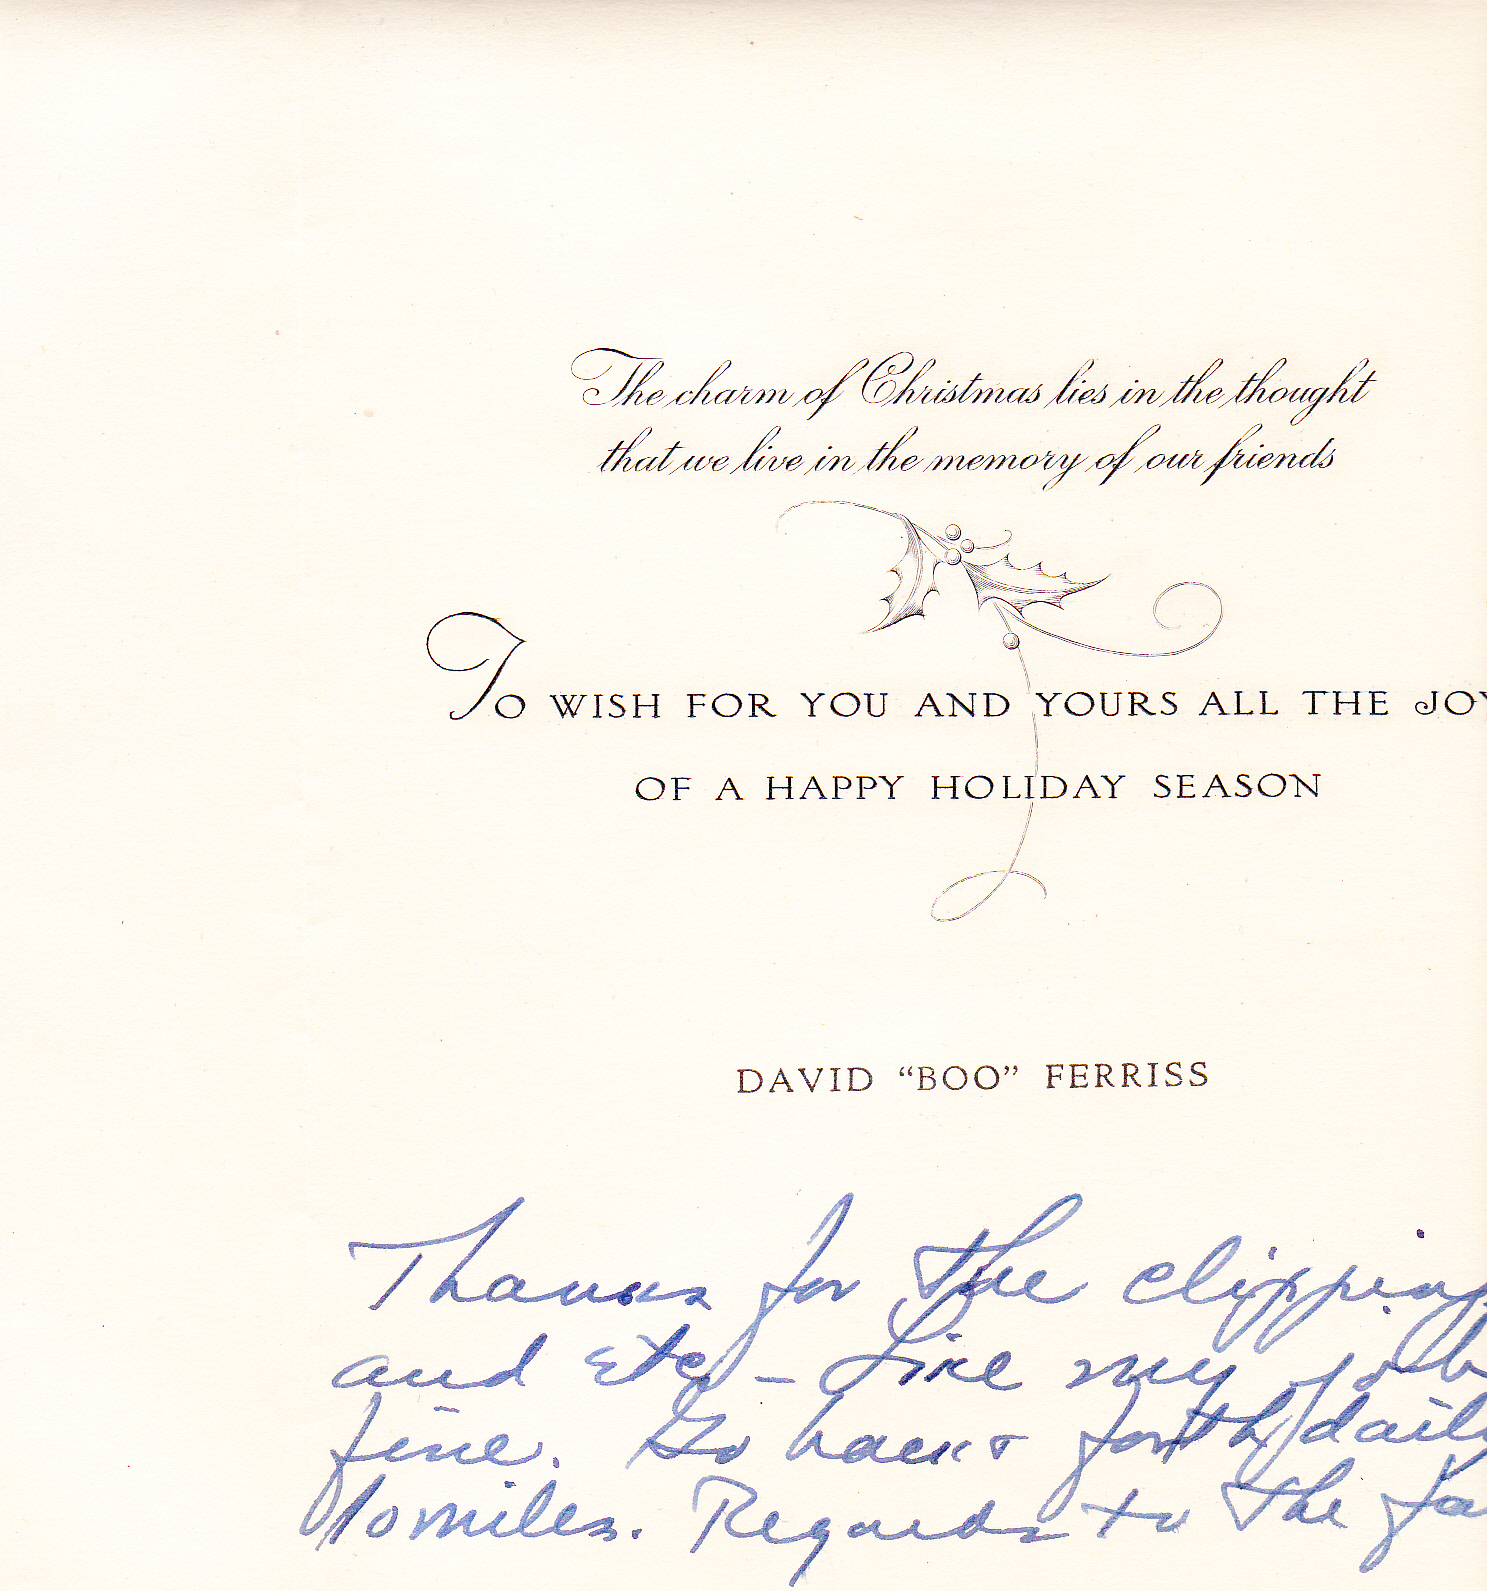 The charm of Christmas lies in the thought
that we live in the memory of our friends
To wish for you and yours all the joy
OF A HAPPY HOLIDAY SEASON
DAVID “BOO” FERRISS
Thanks for the clipping
and etc – Like my job
fine. Go back & forth daily
10 miles. Regards to the fa